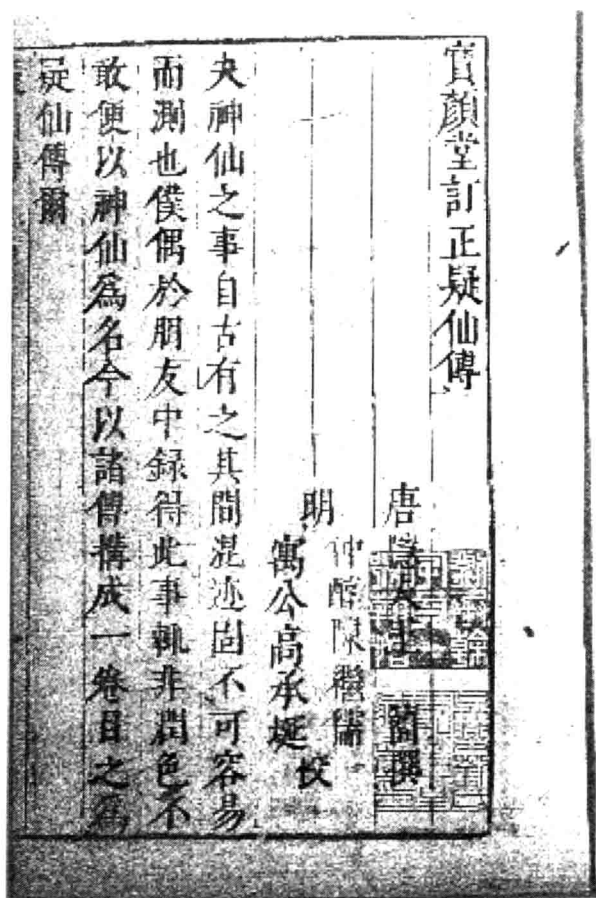 寶顏堂訂正疑仙傳
唐隱夫玉簡撰
明
仲醇陳繼儒
寓公高承埏
校
夫神仙之事自古有之其間混迹固不可容易
而測也僕偶於朋友中録得此事輒非潤色不
敢便以神仙爲名今以諸傳構成一卷目之爲
疑仙傳爾